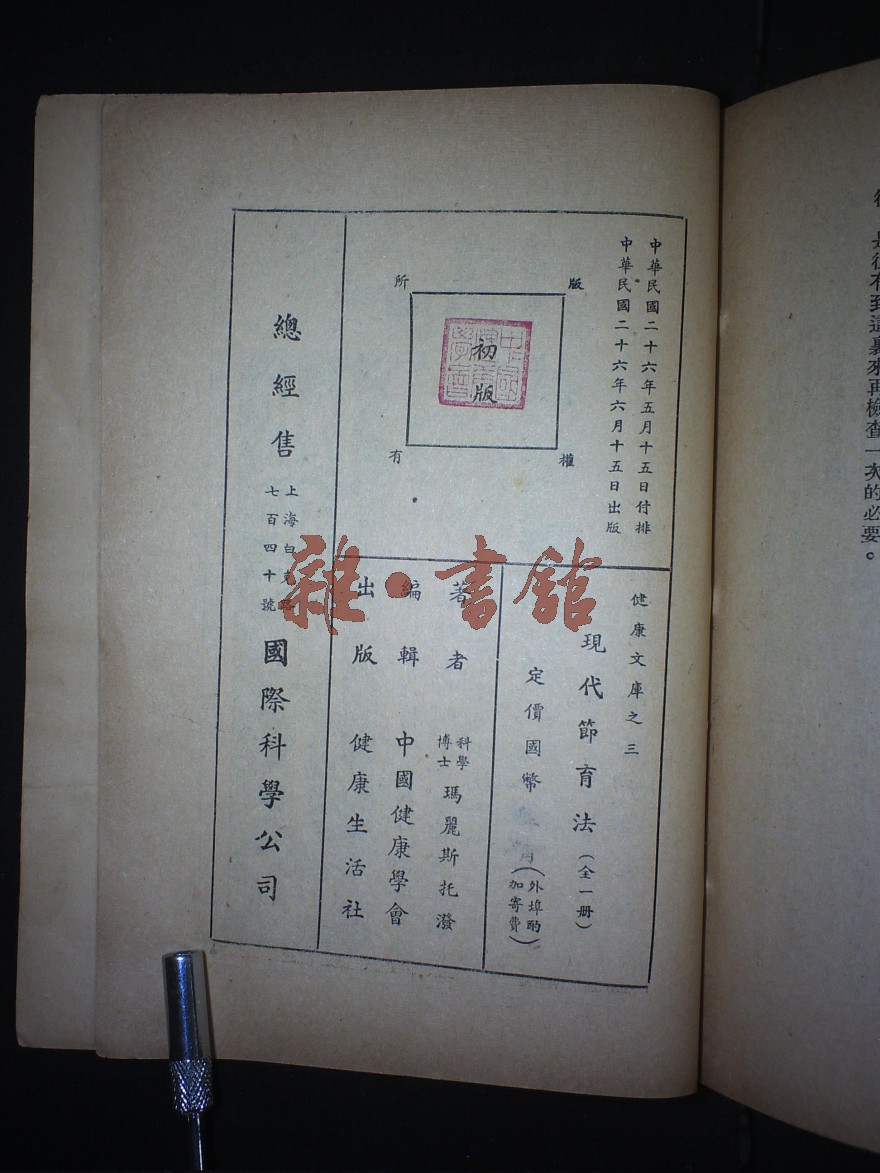 中華民國二十六年五月十五日付排
中華民國二十六年六月十五日出版
版權所有
初版
健康文庫之三
現代節育法(全一册)
定價國幣
角(外埠酌
加寄費)
著者
科學
博士
瑪麗斯托潑
編輯 中國健康學會
出版 健康生活社
總經售
上海白克路
七百四十號
國際科學公司
雜·書館
是後有到這裏來再檢查一次的必要。